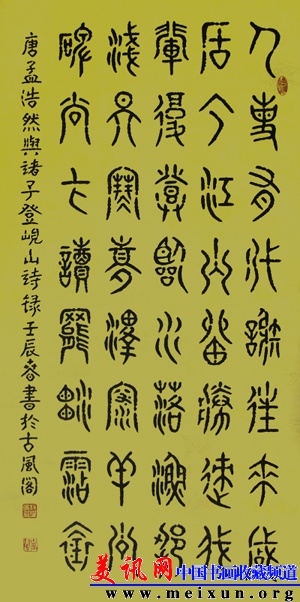 人事有代謝往來成
古今江山留勝迹我
輩復登臨水落漁梁
淺天寒夢澤深羊公
碑尚在讀罷泪霑襟
唐孟浩然與諸子登峴山詩錄壬辰春書於古風阁
美讯网 中国书画收藏频道
www.meixun.org